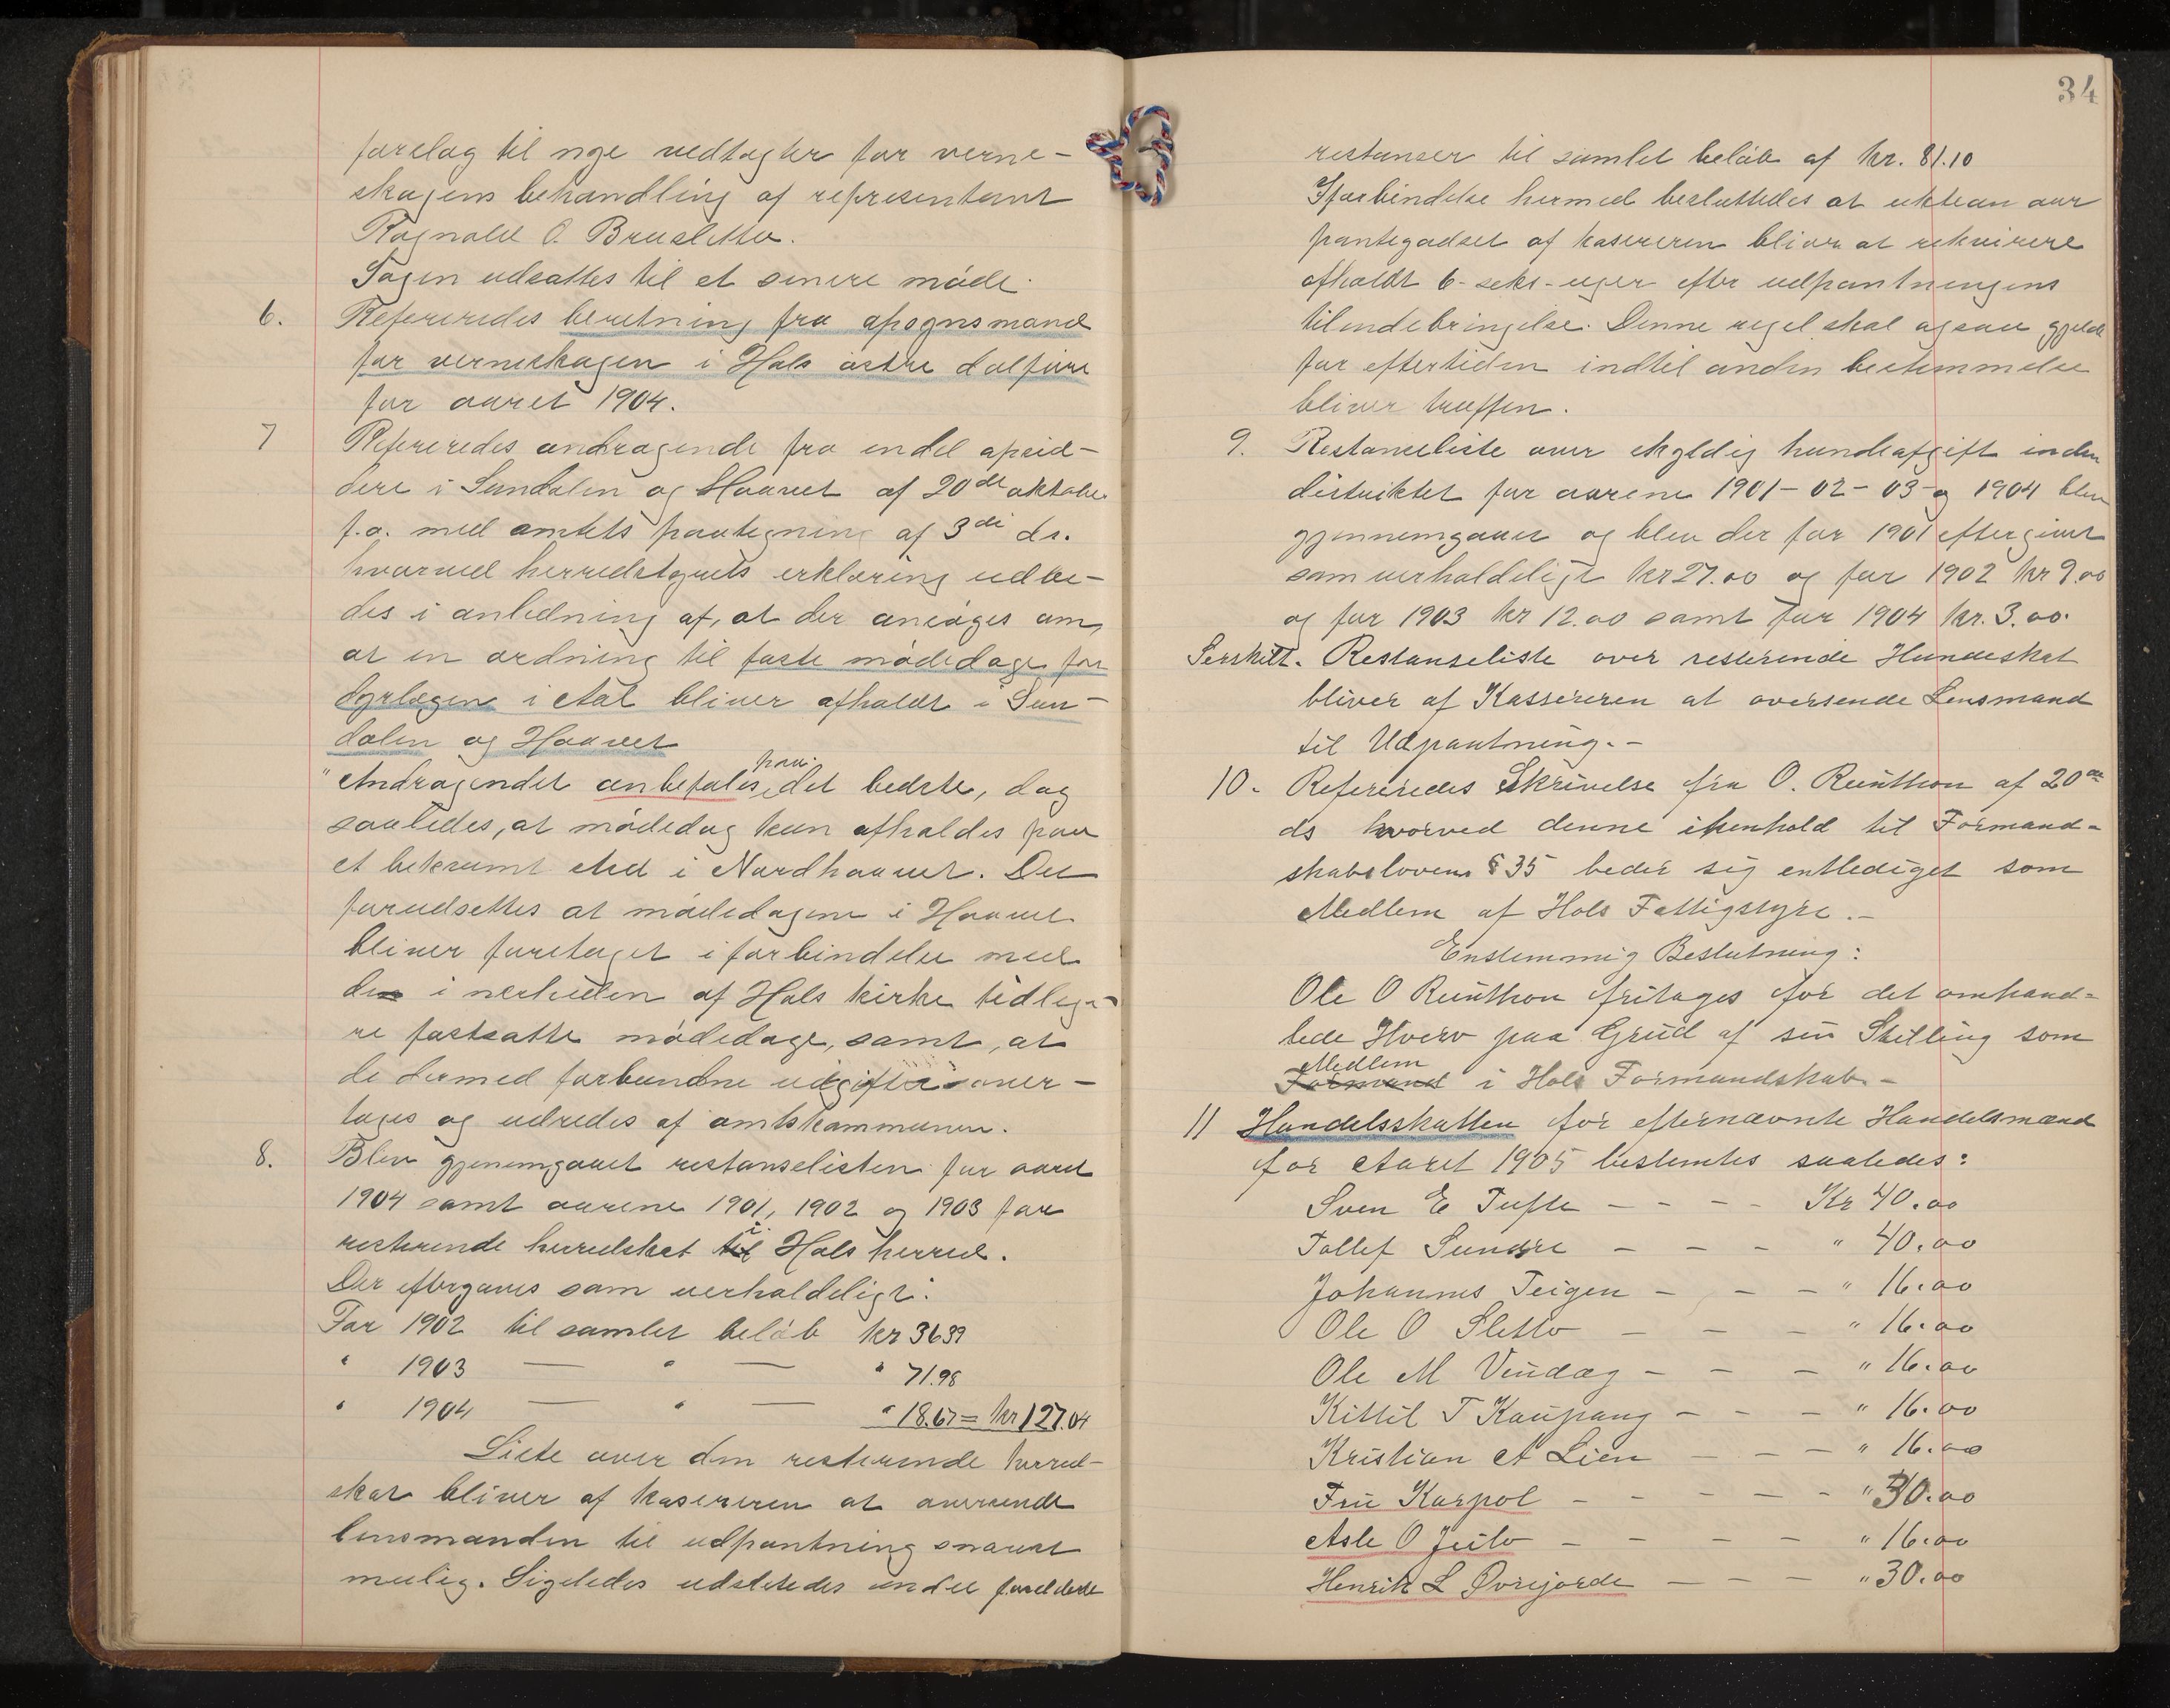 forslag til nye vedtægter for verne-
skogens behandling af representant
Ragnald O. Brusletto.
Sagen udsattes til et senere møde.
6. Refereredes beretning fra opsynsmand
for verneskogen i Hols østre dalføre
for aaret 1904.
7 Refereredes andragende fra endel opsid-
dere i Sundalen og Hovet af 20de oktober
f.a. med amtets paategning af 3die ds.
hvorved herredstyrets erklæring udbe-
des i anledning af, at der ansøges om,
at en ordning til faste mødedage for
dyrlægen i Aal bliver afholdt i Sun-
dalen og Hovet
"Andragendet anbefales paa det bedste, dog
saaledes, at mødedag kun afholdes paa
et bekvemt sted i Nordhovet. Det
forudsettes at mødedagene i Hovet
bliver foretaget i forbindelse med
de i nerheden af Hols kirke tidlige-
re fastsatte mødedage, samt, at
de dermed forbundne udgifter over-
tages og udredes af amtskommunen.
8. Blev gjenemgaaet restanselisten for aaret
1904 samt aarene 1901, 1902 og 1903 for
resterende herredskat til i Hols herred.
Der eftergaves som uerholdeligt:
For 1902 til samlet beløb kr 36 39
" 1903 — " — " 71.98
" 1904 — " — " 18.67 = kr 127.04
Liste over den resterende herred-
skat bliver af kasereren at oversende
lensmanden til udpantning snarest
mulig. Ligeledes udslettedes endel foreldede
34
restanser til samlet beløb af kr. 81.10
I forbindelse hermed besluttedes at auktion over
pantegodset af kasereren bliver at rekvirere
afholdt 6-seks-uger efter udpantningens
tilendebringelse. Denne regel skal ogsaa gjelde
for eftertiden indtil anden bestemmelse
bliver truffen.
9. Restanseliste over skyldig hundeafgift inden
distriktet for aarene 1901-02-03 og 1904 blev
gjennemgaaet og blev der for 1901 eftergivet
som uerholdeligt kr 27.00 og for 1902 kr 9.00
og for 1903 kr 12.00 samt for 1904 kr. 3.00.
Særskilt. Restanseliste over resterende Hundeskat
bliver af Kassereren at oversende Lensmand
til Udpantning.-
10. Refereredes Skrivelse fra O. Reinthon af 20de
ds hvorved denne ihenhold til Formand-
skabslovens § 35 beder sig entlediget som
Medlem af Hols Fattigstyre.-
Enstemmig Beslutning:
Ole O Reinthon fritages for det omhand-
lede Hverv paa Grund af sin Stilling som
Formand Medlem i Hols Formandskab.-
11 Handelsskatten for efternævnte Handelsmænd
for Aaret 1905 bestemtes saaledes:
Sven E Tufte - - - - Kr 40.00
Tollef Sundre - - - " 40.00
Johannes Teigen - - - " 16.00
Ole O Sletto - - - " 16.00
Ole M Vindæg - - - " 16.00
Kittil T Kaupang - - - " 16.00
Kristian A Lien - - - " 16.00
Fru Karpol - - - - - " 30.00
Asle O Juilo - - - - " 16.00
Henrik L Øvrejorde - - - " 30.00